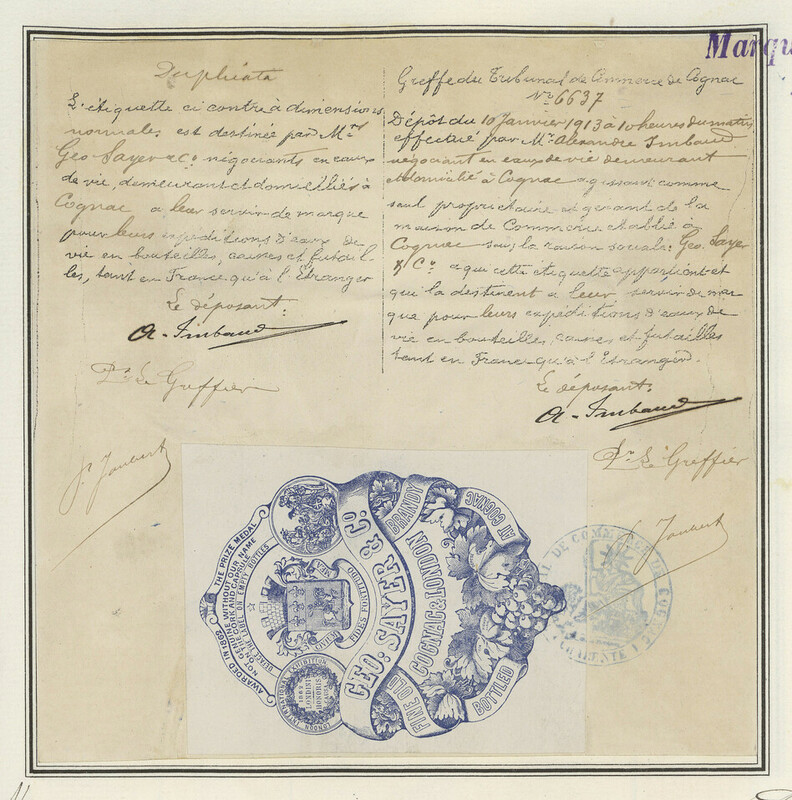 Duplicata
L'étiquette ci contre à dimensions
normales est destinée par Mrs
Geo Sayer & Co négociants en eaux
de vie, demeurant et domiciliés à
Cognac a leur servir de marque
pour leurs expéditions d'eaux de
vie en bouteilles, caisses et futail-
les, tant en France qu'à l'Etranger
Le déposant:
A. Imbaud
Pr Le Greffier
J. Jaubert
Marqu
Greffe du Tribunal de Commerce de Cognac
No 6637
Dépôt du 10 Janvier 1913 à 10 heures du matin
effectué par Mr Alexandre Imbaud
négociant en eaux de vie demeurant
et domicilié à Cognac agissant comme
seul propriétaire et gérant de la
maison de Commerce établie à
Cognac sous la raison sociale: Geo. Sayer
& Co a qui cette étiquette appartient et
qui la destinent a leur servir de mar
que pour leurs expéditions d'eaux de
vie en bouteilles, caisses et futailles
tant en France qu'à l'Etranger.
Le déposant:
A. Imbaud
Pr Le Greffier
J. Jaubert
AWARDED IN 1862 THE PRIZE MEDAL
NONE GENUINE WITHOUT OUR NAME
ON THE CORK AND CAPSULE
DEFACE THE LABEL ON EMPTY BOTTLES
LONDON INTERNATIONAL EXHIBITION
1862
LONDINI
HONORIS
CAUSA
MEA
FIDES
GEO: SAYER & CO.
COGNAC & LONDON
FINE OLD BRANDY
BOTTLED AT COGNAC
DE COMMERCE DE
CHARENTE